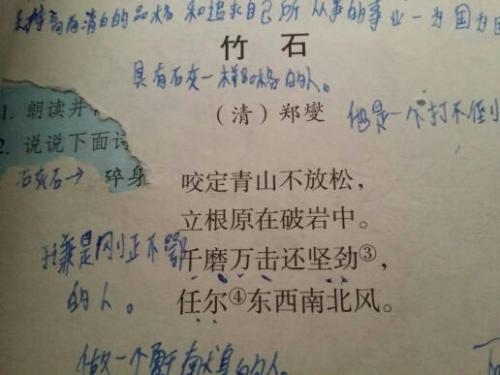 持高尚清白的品格 和追求自己所 从事的事业一为国为
竹石
具有石灰一样品格的人。
1. 朗读并
（清）郑燮
他是一个打不倒小
2. 说说下面诗
石灰石→ 碎身
咬定青山不放松，
立根原在破岩中。
是刚正不
千磨万击还坚劲③，
的人。
任尔④东西南北风。
做一个勇于献身的人。